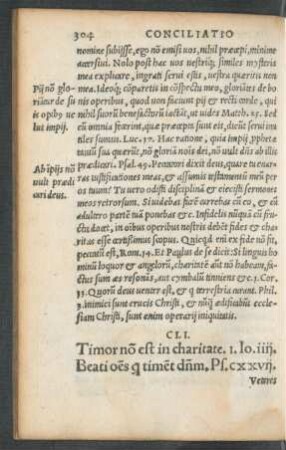 304 CONCILIATIO
nomine subijsse, ego nō emisi uos, nihil præcepi, minime
accersiui. Nolo post hac uos nestris similes mysteris
mea explicare, ingrati serui estis, uestra quæritis non
Pij nō glo mea. Ideoq; cōparetis in cōspectu meo, gloriātes de bo
riātur de su nis operibus, quod non faciunt pij & recti corde, qui
is opibus ue nihil suorū benefactorū iactāt, ut uides Matth. 25. Sed
lut impij. cū omnia fecerint, quæ præcepta sunt eis, dicūt serui inu
tiles sumus. Luc. 17. Hac ratione, quia impij
suā quærūt, nō gloriā nois dei, nō uult diis ab illis
Ab ipijs nō Prædicari. Psal. 49. Peccatori dixit deus, quare tu enar
uult prædi ras iustificationes meas, & assumis testamentū meū per
cari deus. os tuum? Tu uero odisti disciplinā & eiecisti sermones
meos retrorsum. Si uidebas furē currebas cū eo, & cū
adultero partē tuā ponebas &c. Infidelis nūquā cū fru
ctu docet, in oībus operibus nostris debēt fides & cha
ritas esse
peccatū est, Rom. 14. Et Paulus de se dicit: Si linguis ho
minū loquor & angelorū, charitatē aūt nō habeam, fa
ctus sum æs resonās, aut cymbalū tinniens &c. 1. Cor.
13. Quorū deus uenter est, & q terrestria curant. Phil.
3. inimici sunt crucis Christi, & nūq ædificabūt eccle
siam Christi, sunt enim operarij iniquitatis.
CLI.
Timor nō est in charitate. 1. Io. iiij.
Beati oēs q timēt dñm, Ps. cxxvij.
Veteres